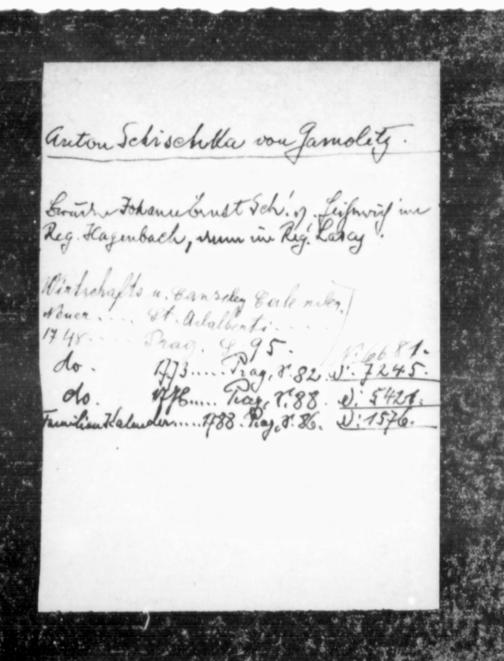 Anton Schischka von Gamolitz.
Bruder Johann Ernst Sch. v. im
Reg. Hagenbach, nun im Reg. Lascy.
Wirtschafts u. Canzley Calender.
Neuer .... St. Adalberti .....
1748. .... Prag. S. 95. N: 6681.
do. 1773 ..... Prag, S. 82. N: 7245.
do. 1776 ..... Prag, S. 88. N: 5421.
Familien Kalender .... 1788. Prag, S. 86. N: 1576.